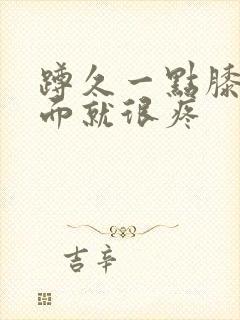 蹲久一點膝
而就很疼
吉辛